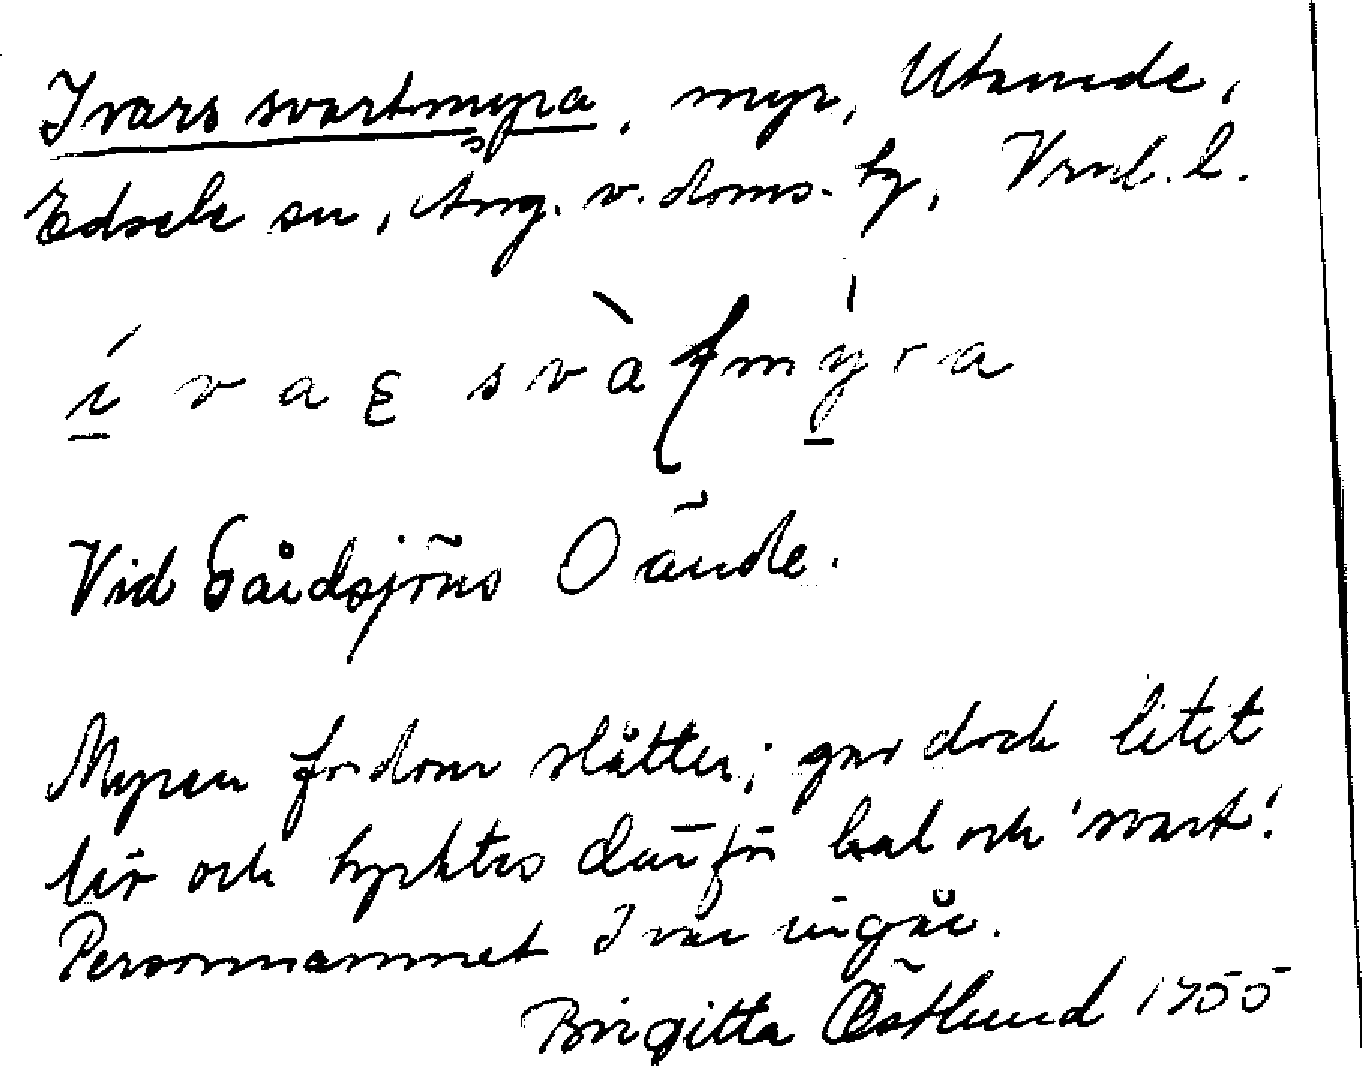 Ivars svartmyra, myr, Utanede,
Edsele sn, Ång. v. doms. tg, Vrnl. l.
Vid Gåidsjöns Oände.
Myren fordom slåtter; gav dock litet
hö och tycktes därför kal och 'svart'.
Personnamnet Ivar ingår.
Birgitta Östlund 1955